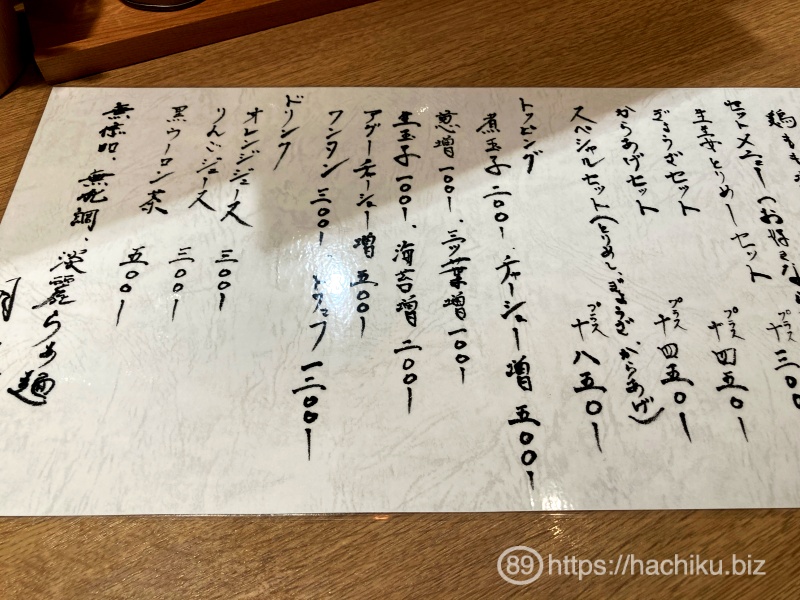 鶏もも
セットメニュー(お好きな
プラス
十三〇〇
生とりめしセット
プラス
十四五〇ー
ぎょうざセット
プラス
十四五〇ー
からあげセット
スペシャルセット(とりめし、ぎょうざ、からあげ)
プラス
十八五〇ー
トッピング
煮玉子 二〇〇ー、チャーシュー増 五〇〇ー
葱増 一〇〇ー、三ッ葉増 一〇〇ー
生玉子 一〇〇ー、海苔増 二〇〇ー
アグーチャーシュー増 五〇〇ー
ワンタン 三〇〇ー、 一三〇〇ー
ドリンク
オレンジジュース 三〇〇ー
りんごジュース 三〇〇ー
黒ウーロン茶 五〇〇ー
無添加、無化調、淡麗らぁ麺
89 https://hachiku.biz